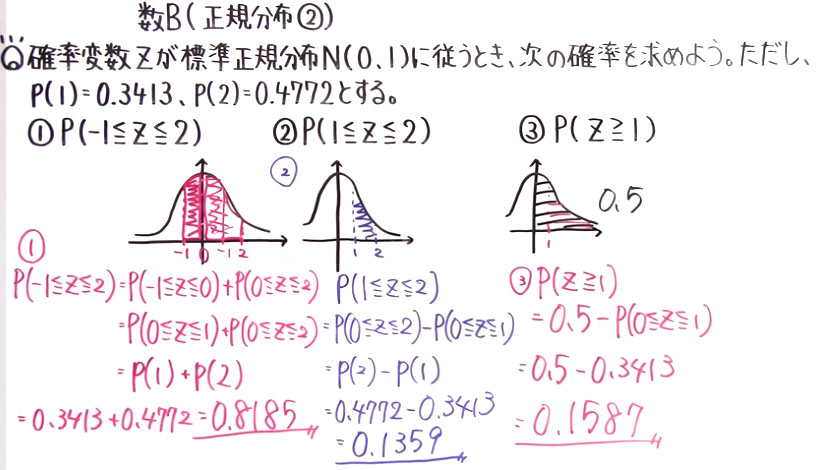 数B(正規分布②)
Q 確率変数Zが標準正規分布N(0,1)に従うとき、次の確率を求めよう。ただし、
P(1)=0.3413、P(2)=0.4772とする。
①P(-1≦Z≦2)
②P(1≦Z≦2)
③P(Z≧1)
①
-1 0 -1 2
P(-1≦Z≦2)=P(-1≦Z≦0)+P(0≦Z≦2)
=P(0≦Z≦1)+P(0≦Z≦2)
=P(1)+P(2)
=0.3413+0.4772=0.8185
②
1 2
P(1≦Z≦2)
=P(0≦Z≦2)-P(0≦Z≦1)
=P(2)-P(1)
=0.4772-0.3413
=0.1359
0.5
1
③P(Z≧1)
=0.5-P(0≦Z≦1)
=0.5-0.3413
=0.1587